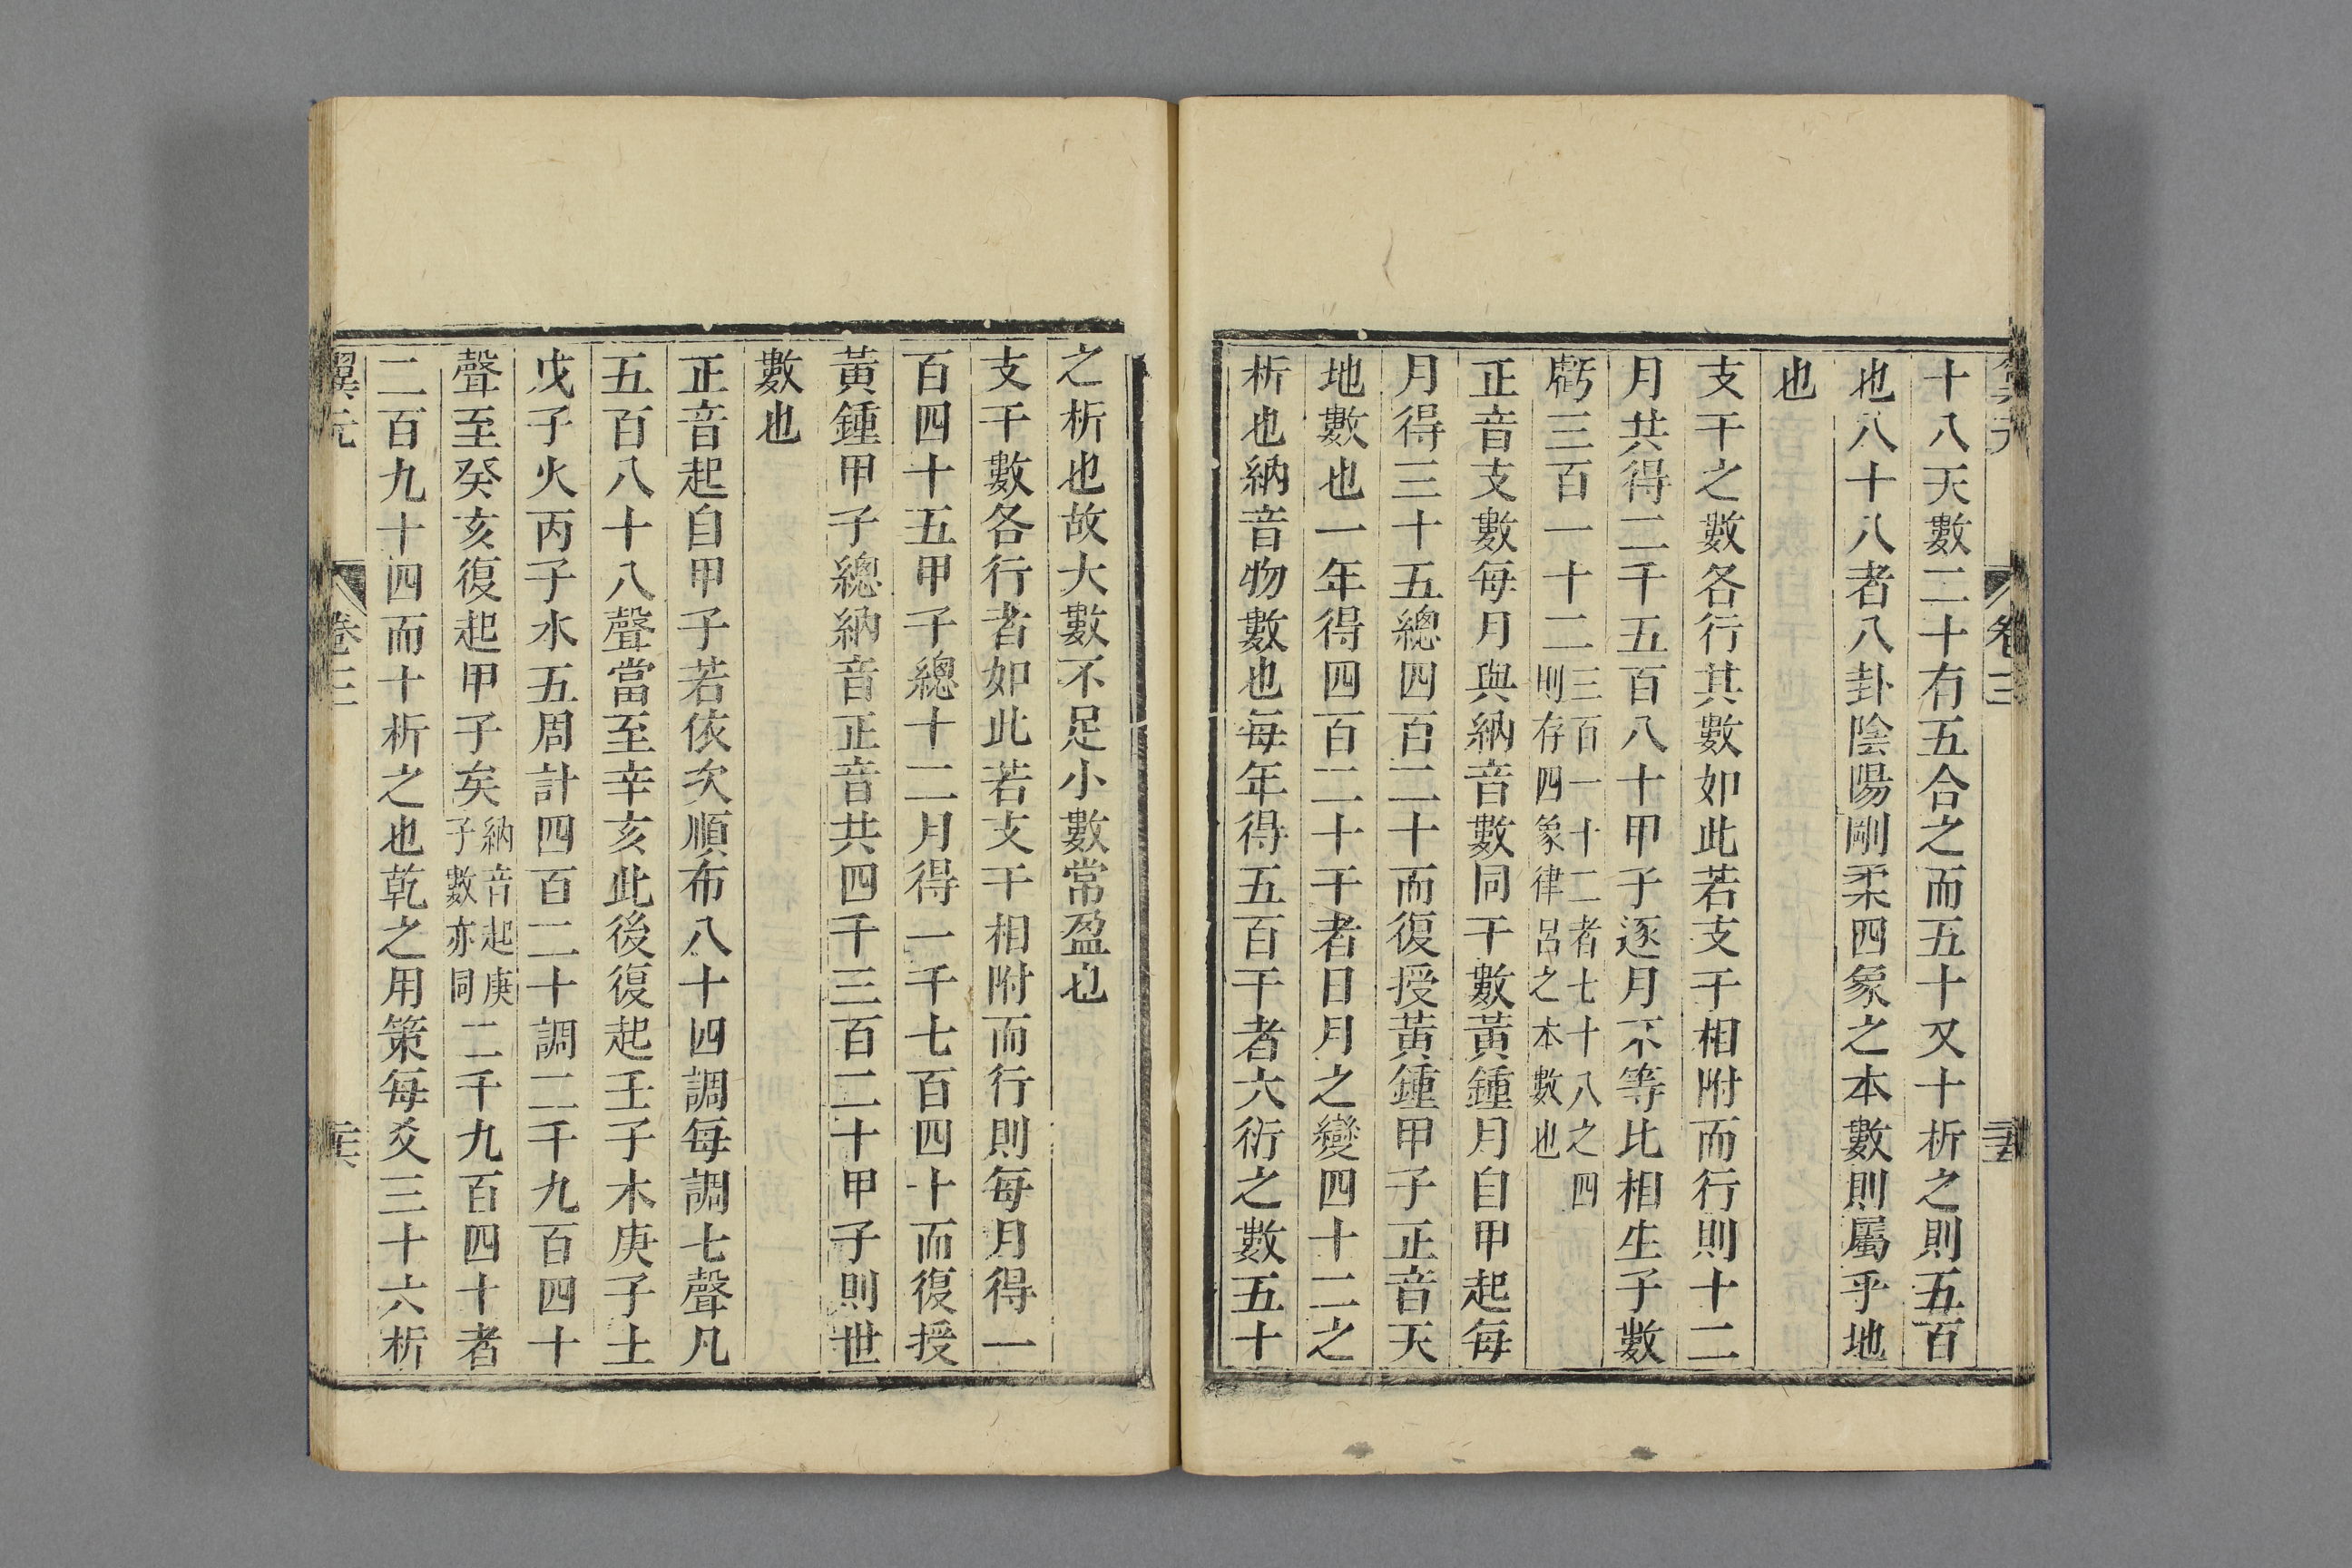 卷三
十八天數二十有五合之而五十又十析之則五百
也八十八者八卦陰陽剛柔四象之本數則屬乎地
也
支干之數各行其數如此若支干相附而行則十二
月共得二千五百八十甲子逐月不等比相生子數
虧三百一十二三百一十二者七十八之四
則存四象律呂之本數也
正音支數每月與納音數同干數黃鍾月自甲起每
月得三十五總四百二十而復授黃鍾甲子正音天
地數也一年得四百二十干者日月之變四十二之
析也納音物數也每年得五百干者六衍之數五十
之析也故大數不足小數常盈也
支干數各行者如此若支干相附而行則每月得一
百四十五甲子總十二月得一千七百四十而復授
黃鍾甲子總納音正音共四千三百二十甲子則世
數也
正音起自甲子若依次順布八十四調每調七聲凡
五百八十八聲當至辛亥此後復起壬子木庚子土
戊子火丙子水五周計四百二十調二千九百四十
聲至癸亥復起甲子矣納音起庚
子數亦同二千九百四十者
二百九十四而十析之也乾之用策每爻三十六析
翼元
卷三